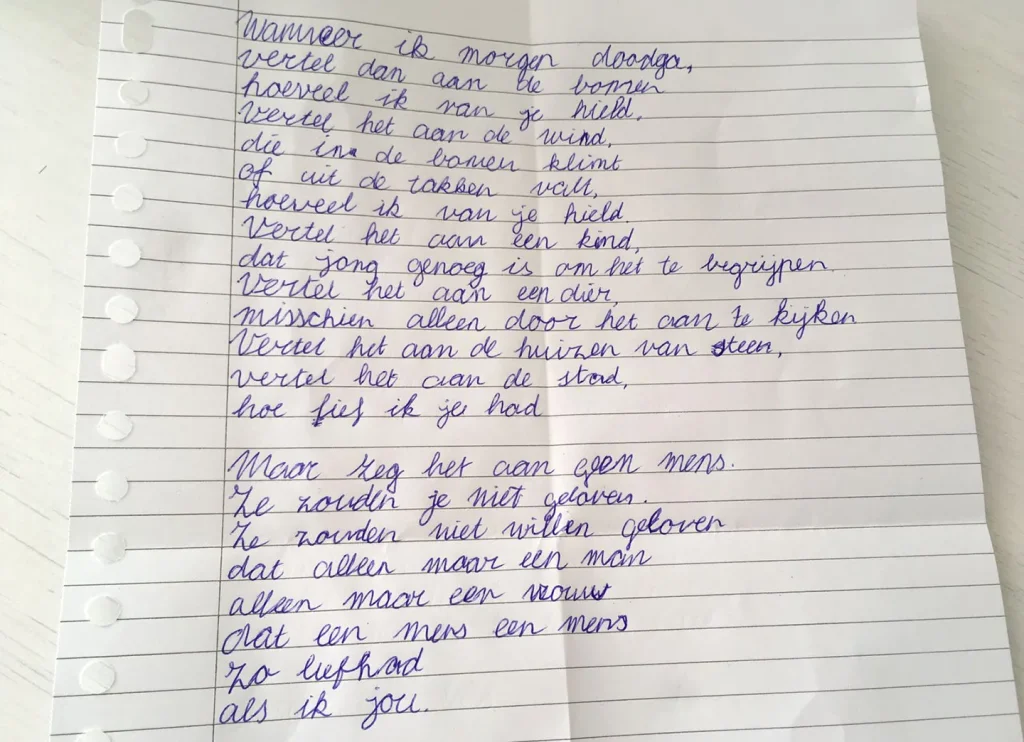 Wanneer ik morgen doodga,
vertel dan aan de bomen
hoeveel ik van je hield.
Vertel het aan de wind,
die in de bomen klimt
of uit de takken valt,
hoeveel ik van je hield.
Vertel het aan een kind,
dat jong genoeg is om het te begrijpen.
Vertel het aan een dier,
misschien alleen door het aan te kijken
Vertel het aan de huizen van steen,
vertel het aan de stad,
hoe lief ik je had
Maar zeg het aan geen mens.
Ze zouden je niet geloven.
Ze zouden niet willen geloven
dat alleen maar een man
alleen maar een vrouw
dat een mens een mens
zo liefhad
als ik jou.